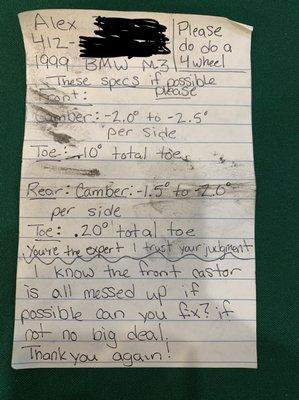 Alex
412-
Please
do do a
4 wheel
1999 BMW M3
These specs if possible
please
Front:
Camber: -2.0° to -2.5°
per side
Toe: .10° total toe
Rear: Camber: -1.5° to -2.0°
per side
Toe: .20° total toe
You're the expert I trust your judgment
I know the front castor
is all messed up if
possible can you fix? if
not no big deal.
Thank you again!